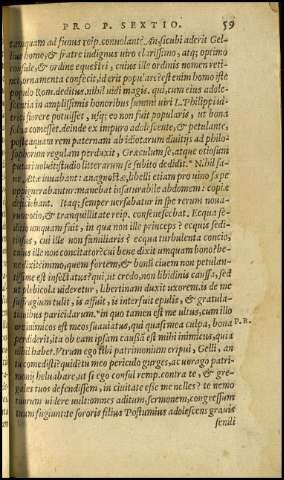 PRO P. SEXTIO. 59
tamquam ad funus reip. conuolant? An sicubi aderit Gel-
lius homo, & fratre indignus uiro clarissimo, atq; optimo
consule, & ordine equestri, cuius ille ordinis nomen reti-
net, ornamenta confecit, id erit populare? est enim homo iste
populo Rom. deditus. nihil uidi magis. qui, cum eius adole-
scentia in amplissimis honoribus summi uiri L. Philippi ui-
trici florere potuisset, usq; eo non fuit popularis, ut bona
solus comesset. deinde ex impuro adolescente, & petulante,
postea quam rem paternam ab idiotarum diuitijs ad philo-
sophorum regulam perduxit, Græculum se, atque otiosum
putari uoluit: studio litterarum se subito dedidit. Nihil sa-
ne
iuuabant: anagnostæ, libelli etiam pro uino sæpe
oppignerabantur: manebat insaturabile abdomen: copiæ
deficiebant. Itaq; semper uersabatur in spe rerum nouarum:
otio, & tranquillitate reip. consenescebat. Ecqua se-
ditio umquam fuit, in qua non ille princeps? ecquis sedi-
tiosus, cui ille non familiaris? ecqua turbulenta concio,
cuius ille non concitator? cui bene dixit umquam bono? be-
ne dixit? immo, quem fortem, & bonum ciuem non petulan-
tissime est insectatus? qui, ut credo, non libidinis caussa, sed
ut plebicola uideretur, libertinam duxit uxorem. is de me
suffragium tulit, is affuit, is interfuit epulis, & gratula-
tionibus paricidarum. in quo tamen est me ultus, cum illo
ore inimicos est meos suauiatus, qui quasi mea culpa, bona P. R.
perdiderit, ita ob eam ipsam causã est mihi inimicus, quia
nihil habet. Vtrum ego tibi patrimonium eripui, Gelli, an
tu comedisti? quid? tu meo periculo gurges, ac uorago patri-
monij heluabare, ut si ego consul remp. contra te, & gre-
gales tuos defendissem, in ciuitate esse me nolles? te nemo
tuorum uidere uult: omnes aditum, sermonem, congressum
tuum fugiunt: te sororis filius Postumius adolescens grauis
senili